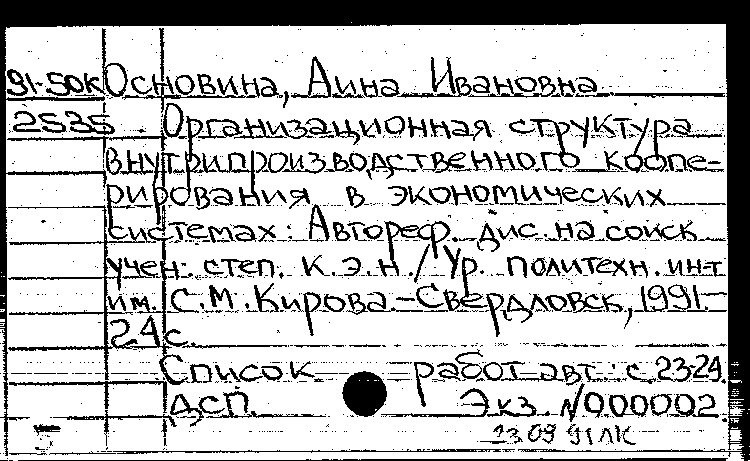 91-50к Основина, Анна Ивановна
2535 Организационная структура
внутрипроизводственного коопе-
рирования в экономических
системах: Автореф. дис. на соиск
учен. степ. к.э.н. / Ур. политехн. ин-т
им. С.М. Кирова. - Свердловск, 1991. -
24 с.
Список работ авт.: с. 23-24.
ДСП. Экз. N 000002.
5 13 09 91 ЛК